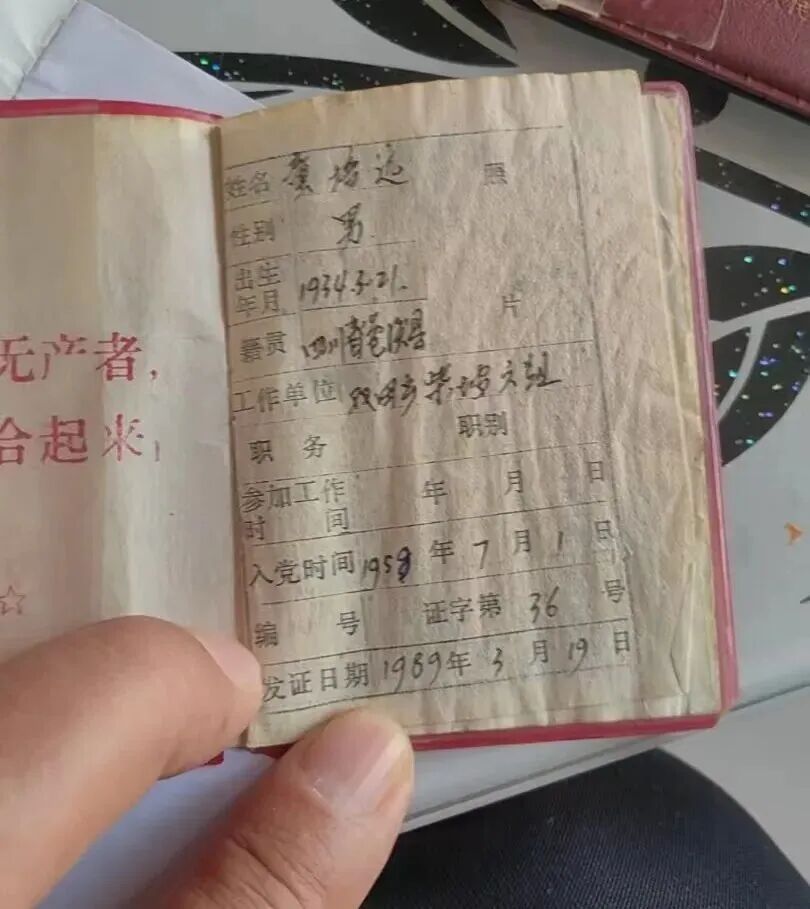 无产者，
合起来！
姓名 照
性别 男
出生年月 1934.3.21. 片
籍贯 四川省苍溪县
工作单位
职务 职别
参加工作时间 年 月 日
入党时间 1958 年 7 月 1 日
编号 证字第 36 号
发证日期 1989年 3 月 19 日